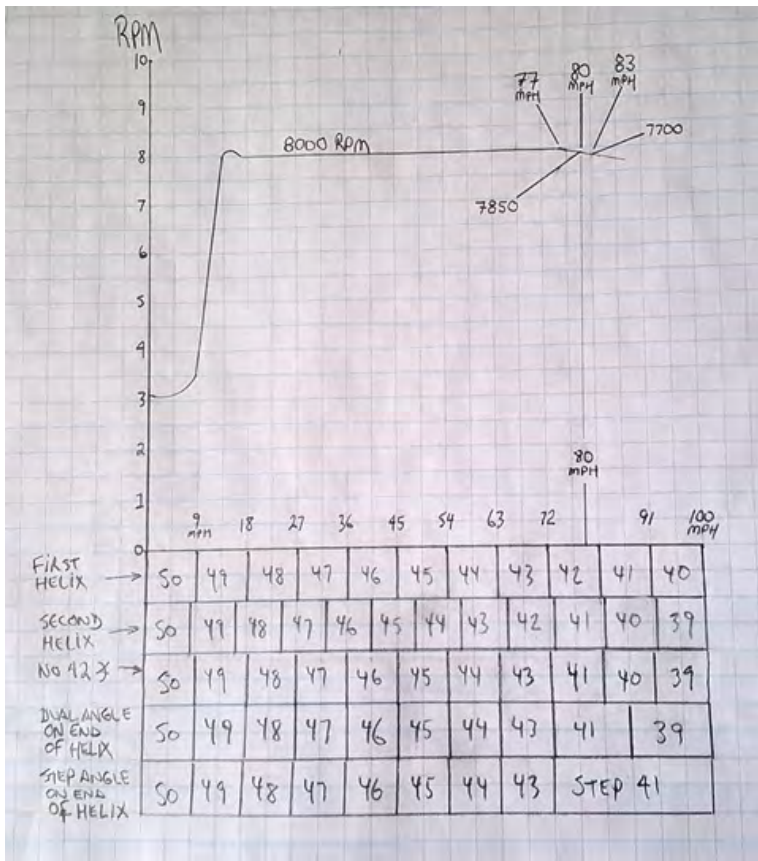 RPM
10
9
8
7
6
5
4
3
2
1
0
8000 RPM
77
MPH
80
MPH
83
MPH
7700
7850
80
MPH
9
MPH
18
27
36
45
54
63
72
91
100
MPH
FIRST
HELIX
50 49 48 47 46 45 44 43 42 41 40
SECOND
HELIX
50 49 48 47 46 45 44 43 42 41 40 39
NO 42 
50 49 48 47 46 45 44 43 41 40 39
DUAL ANGLE
ON END
OF HELIX
50 49 48 47 46 45 44 43 41 39
STEP ANGLE
ON END
OF HELIX
50 49 48 47 46 45 44 43 STEP 41